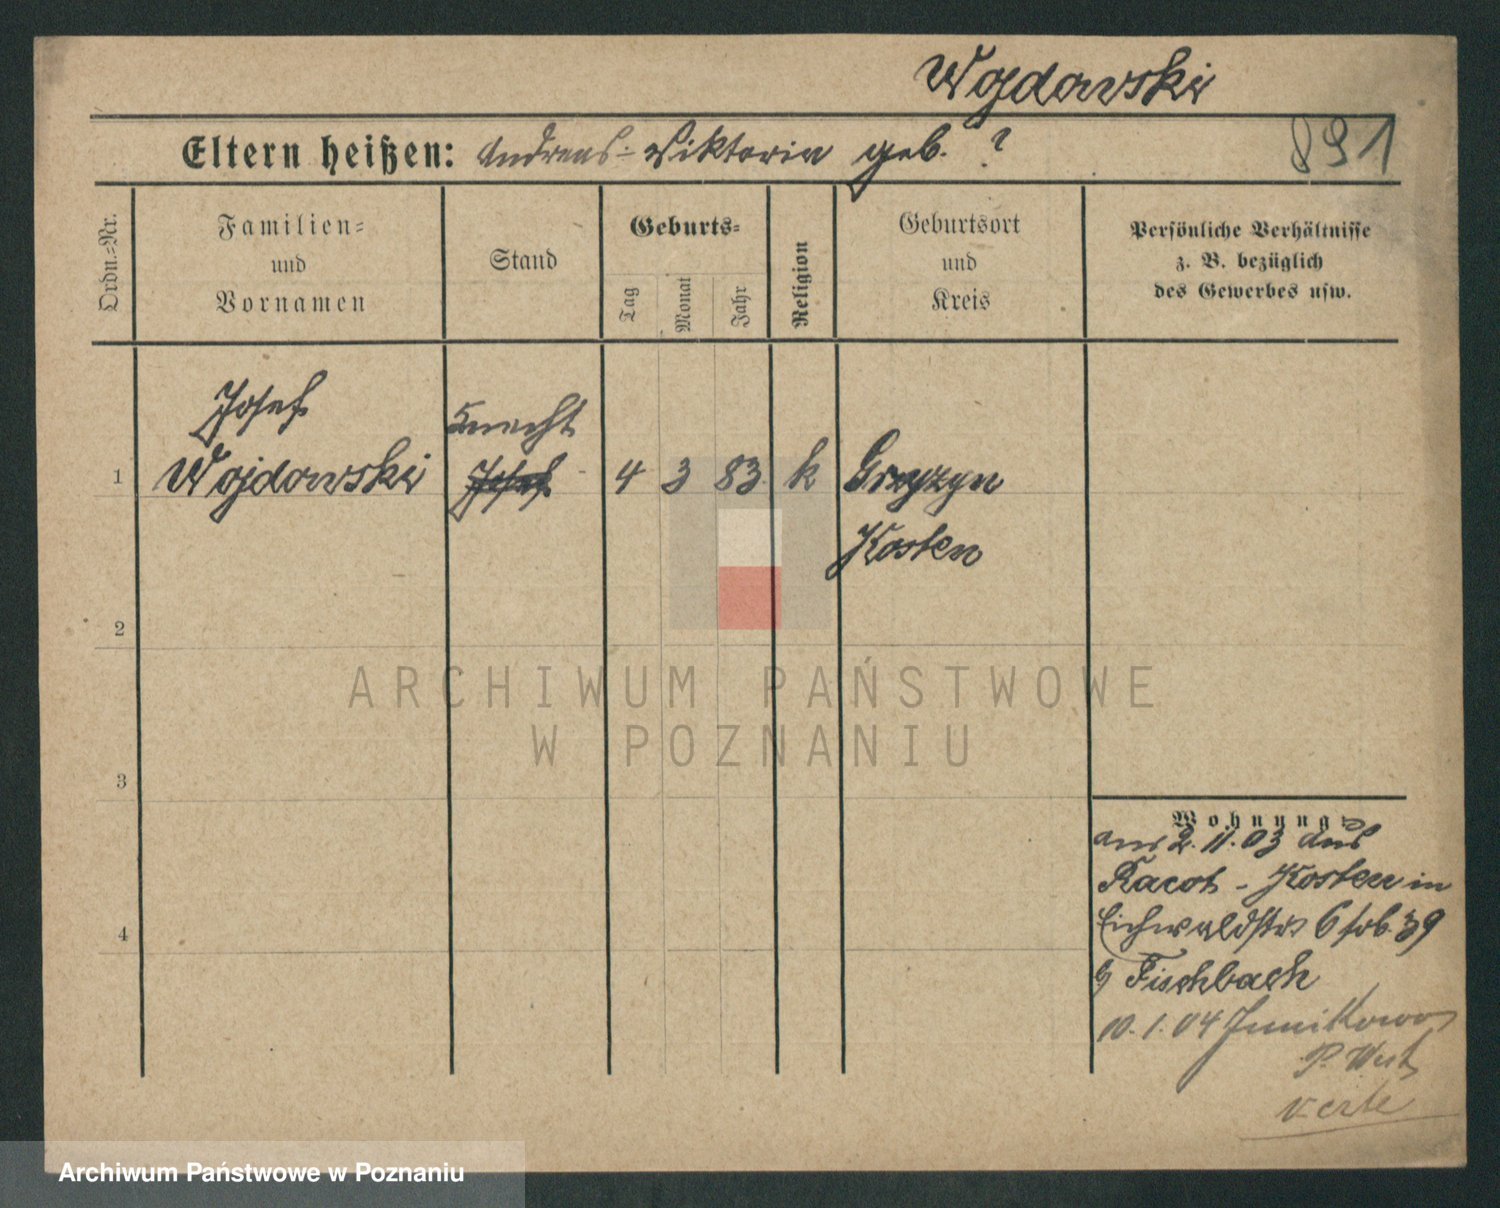 Wojdowski
Eltern heißen: Andreas - Viktoria geb. ?
891
Ordn.=Nr.
Familien=
und
Vornamen
Stand
Geburts=
Tag
Monat
Jahr
Religion
Geburtsort
und
Kreis
Persönliche Verhältnisse
z. B. bezüglich
des Gewerbes usw.
Josef
Knecht
1 Wojdowski Josef 4 3 83 k Gryzyn
Kosten
2
ARCHIWUM PAŃSTWOWE
W POZNANIU
3
Wohnung
am 2. 11. 03 aus
Racot - Kosten in
Eichwaldstr 6 fol. 39
b Fischbach
10. 1. 04 Junikowo
P. West
4
Archiwum Państwowe w Poznaniu